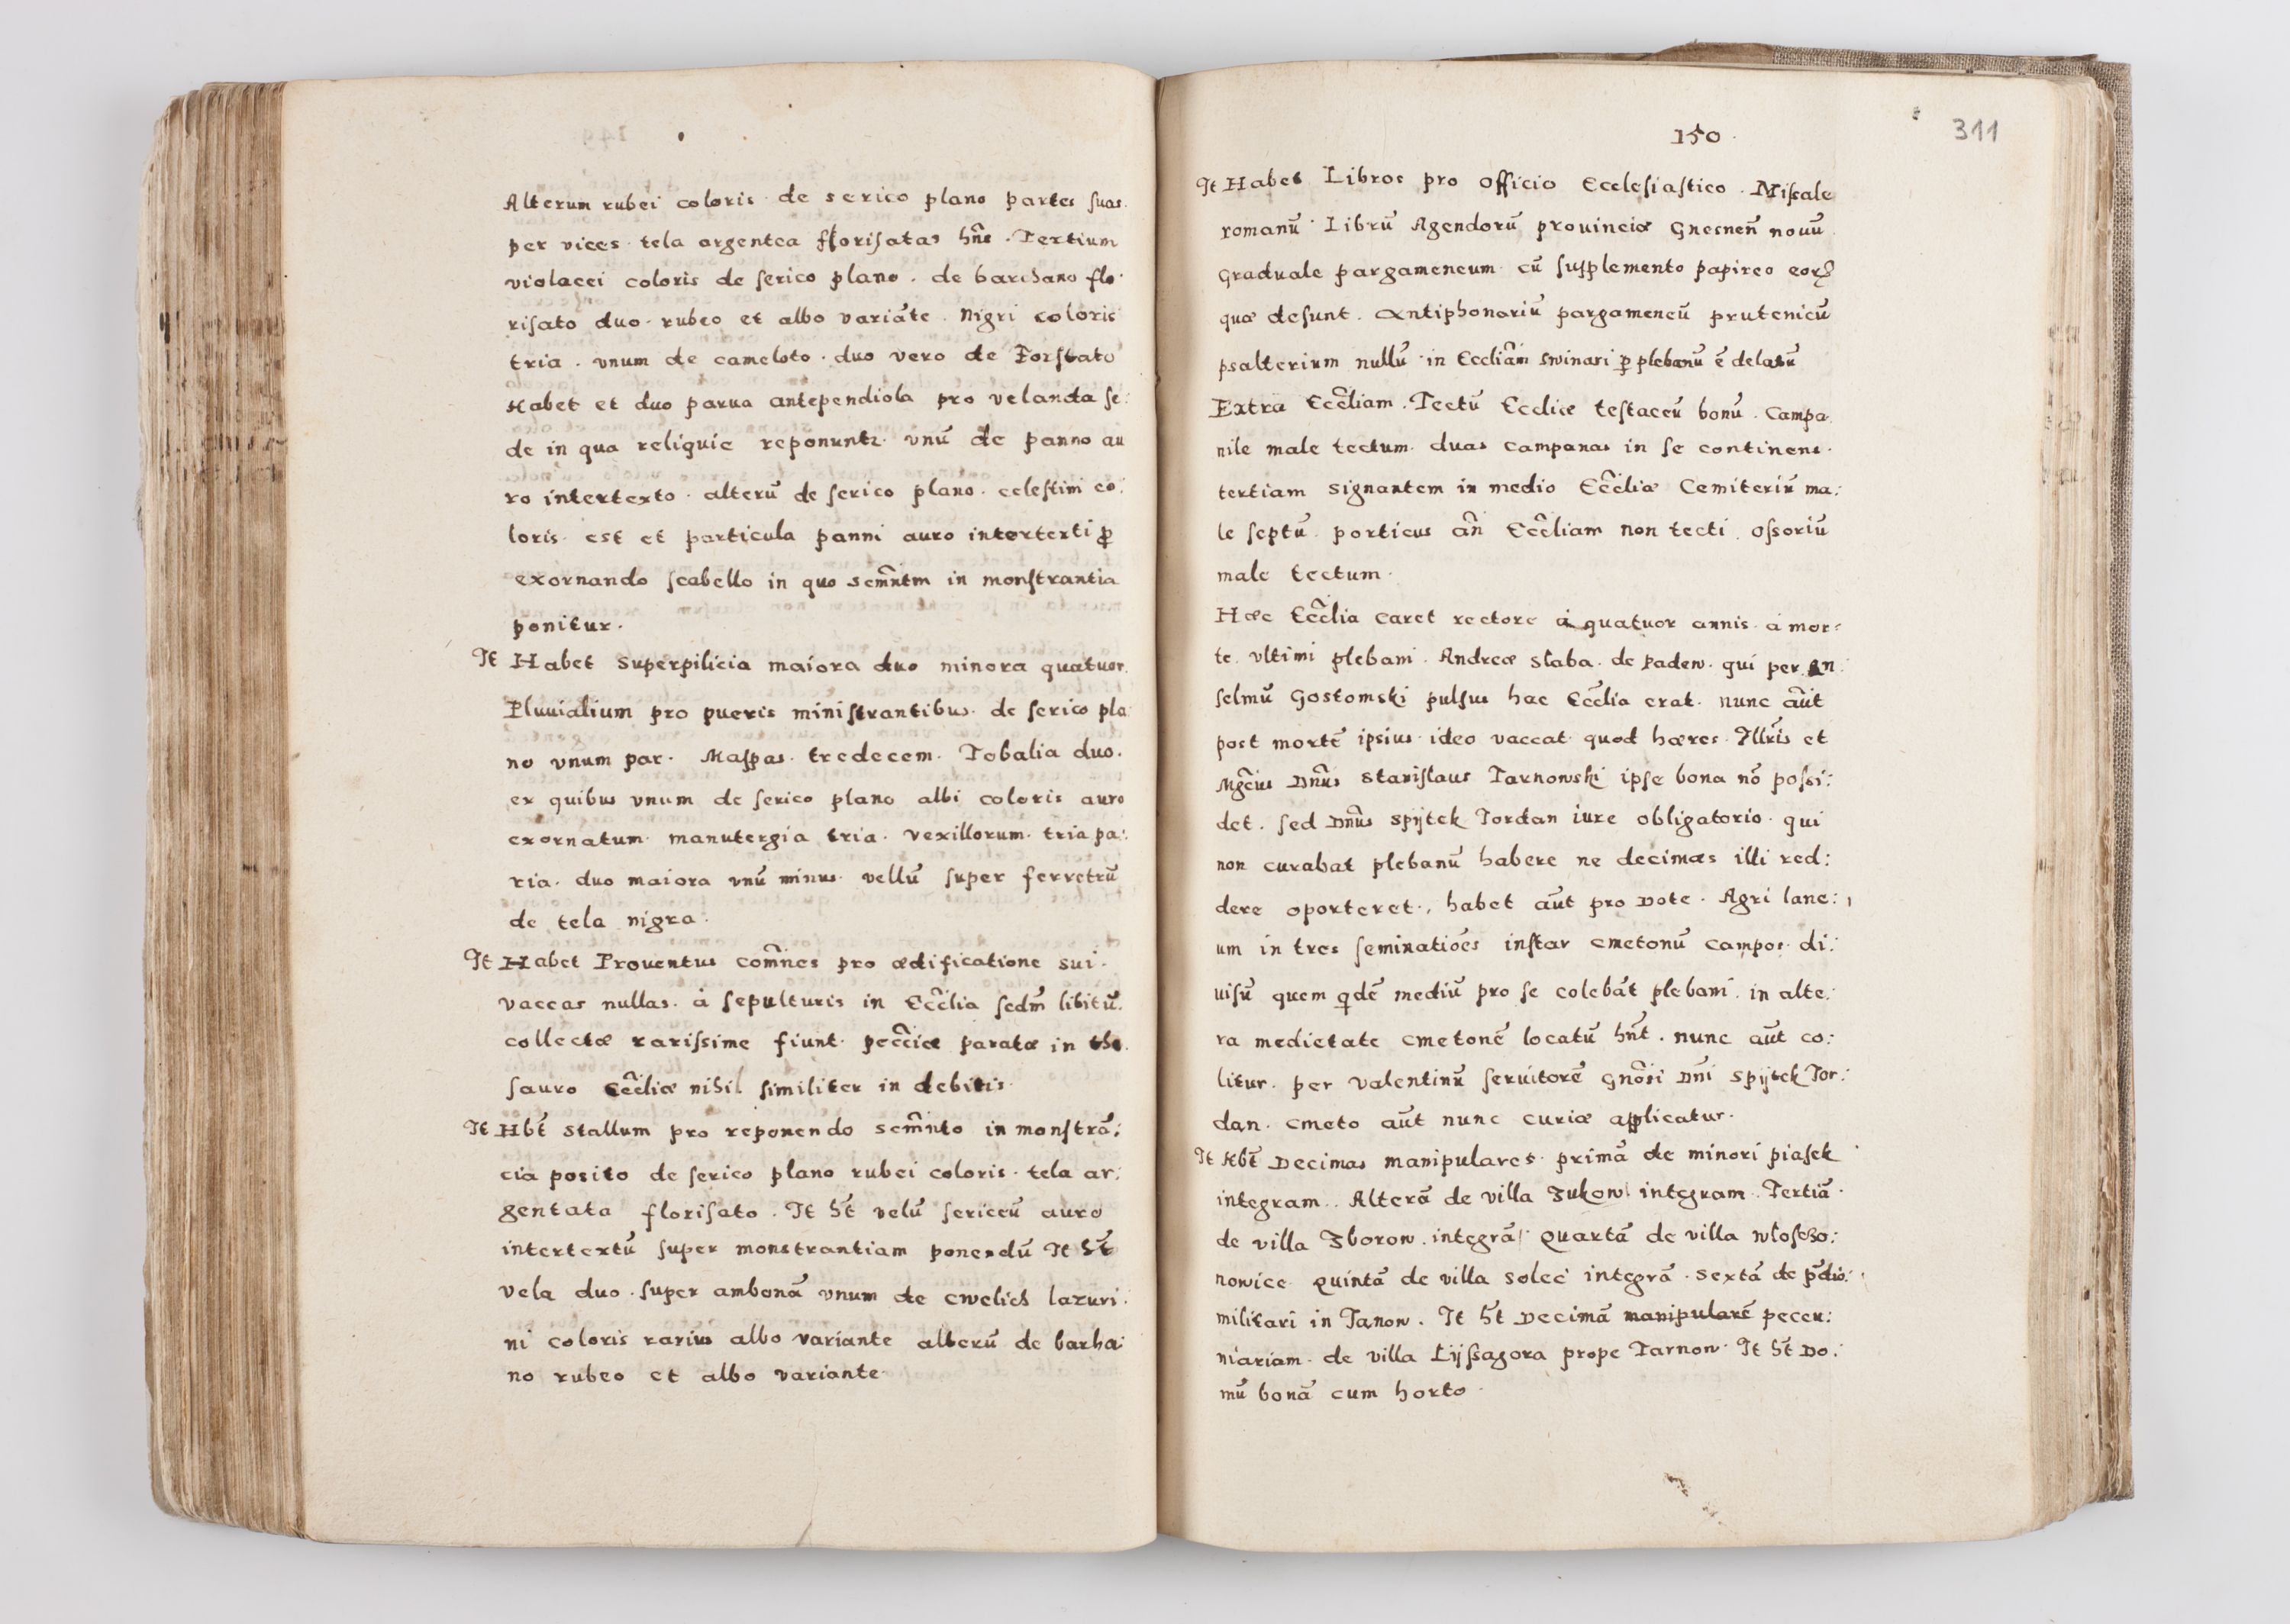 Alterum rubei coloris de serico plano partes suas
per vices tela argentea florisatas hñs. Tertium
violacei coloris de serico plano. de barchano flo:
risato duo rubeo et albo variãte. Nigri coloris
tria. vnum de cameloto. duo vero de Forstato
Habet et duo parua antependiola pro velanda se:
de in qua reliquie reponuntr. vnũ de panno au
ro intertexto. alterũ de serico plano. celestini co:
loris. est et particula panni auro intertexti ꝓ
exornando scabello in quo scm̃ntm in monstrantia
ponitur.
It Habet superpilicia maiora duo minora quatuor.
Pluuialium pro pueris ministrantibus. de serico pla
no vnum par. Mappas. tredecem. Tobalia duo.
ex quibus vnum de serico plano albi coloris auro
exornatum. manutergia tria. vexillorum. tria pa:
ria. duo maiora vnũ minus. vellũ super ferretrũ
de tela nigra.
It Habet Prouentus com̃nes pro ædificatione sui.
vaccas nullas. à sepulturis in Ecc̃lia secdm̃ libitũ.
collectæ rarissime fiunt. pecc̃iæ paratæ in the
sauro Ecc̃liæ nihil similiter in debitis.
It Hb̃t stallum pro reponendo scm̃nto in monstrã:
cia posito de serico plano rubei coloris. tela ar:
gentata florisato. It h̃t velũ sericeũ auro
intertextũ super monstrantiam ponendũ It h̃t
vela duo. super ambonã vnum de cwelich lazuri:
ni coloris rarius albo variante alterũ de barha:
no rubeo et albo variante.
150.
311
It Habet Libros pro officio Ecclesiastico. Missale
romanũ. Librũ Agendorũ prouinciæ Gnesneñ nouũ.
Graduale pargameneum cũ supplemento papireo eorꝝ
quæ desunt. Antiphonariũ pargameneũ prutenicũ
psalterium nullũ in Eccliãm swinari ꝑ plebanũ ẽ delatũ
Extra Ecc̃liam. Tectũ Eccliæ testaceũ bonũ. Campa
nile male tectum. duas campanas in se continens.
tertiam signantem in medio Ecc̃liæ Cemiteriũ ma:
le septũ. porticus añ Ecc̃liam non tecti. Ossoriũ
male tectum.
Hæc Ecc̃lia caret rectore à quatuor annis à mor:
te. vltimi plebani. Andreæ slaba. de Padew. qui per An:
selmũ Gostomski pulsus hac Ecc̃lia erat. nunc aũt
post mortẽ ipsius ideo vaccat quod hæres Illr̃is et
Mgc̃us Dñus Stanislaus Tarnowski ipse bona nõ possi:
det. sed Dñus Spÿtek Jordan iure obligatorio. qui
non curabat plebanũ habere ne decimas illi red:
dere oporteret. habet aũt pro dote. Agri lane:
um in tres seminatiões instar cmetonũ campos. di:
uisũ quem qdẽ mediũ pro se colebãt plebani. in alte:
ra medietate cmetonẽ locatũ hñt. nunc aũt co:
litur. per Valentinũ seruitorẽ Gnõsi Dñi Spÿtek Jor:
dan. cmeto aũt nunc curiæ applicatur.
It Hb̃t Decimas manipulares. primã de minori piasek
integram. Alterã de villa Zukow integram. Tertiã.
de villa Zborow. integrã. Quartã de villa włoscho:
nowice Quintã de villa solec integrã. Sextã de p̃dio:
militari in Janow. It h̃t Decimã manipularẽ pecen:
niariam. de villa Łÿssagora prope Tarnow. It h̃t Do:
mũ bonã cum horto.